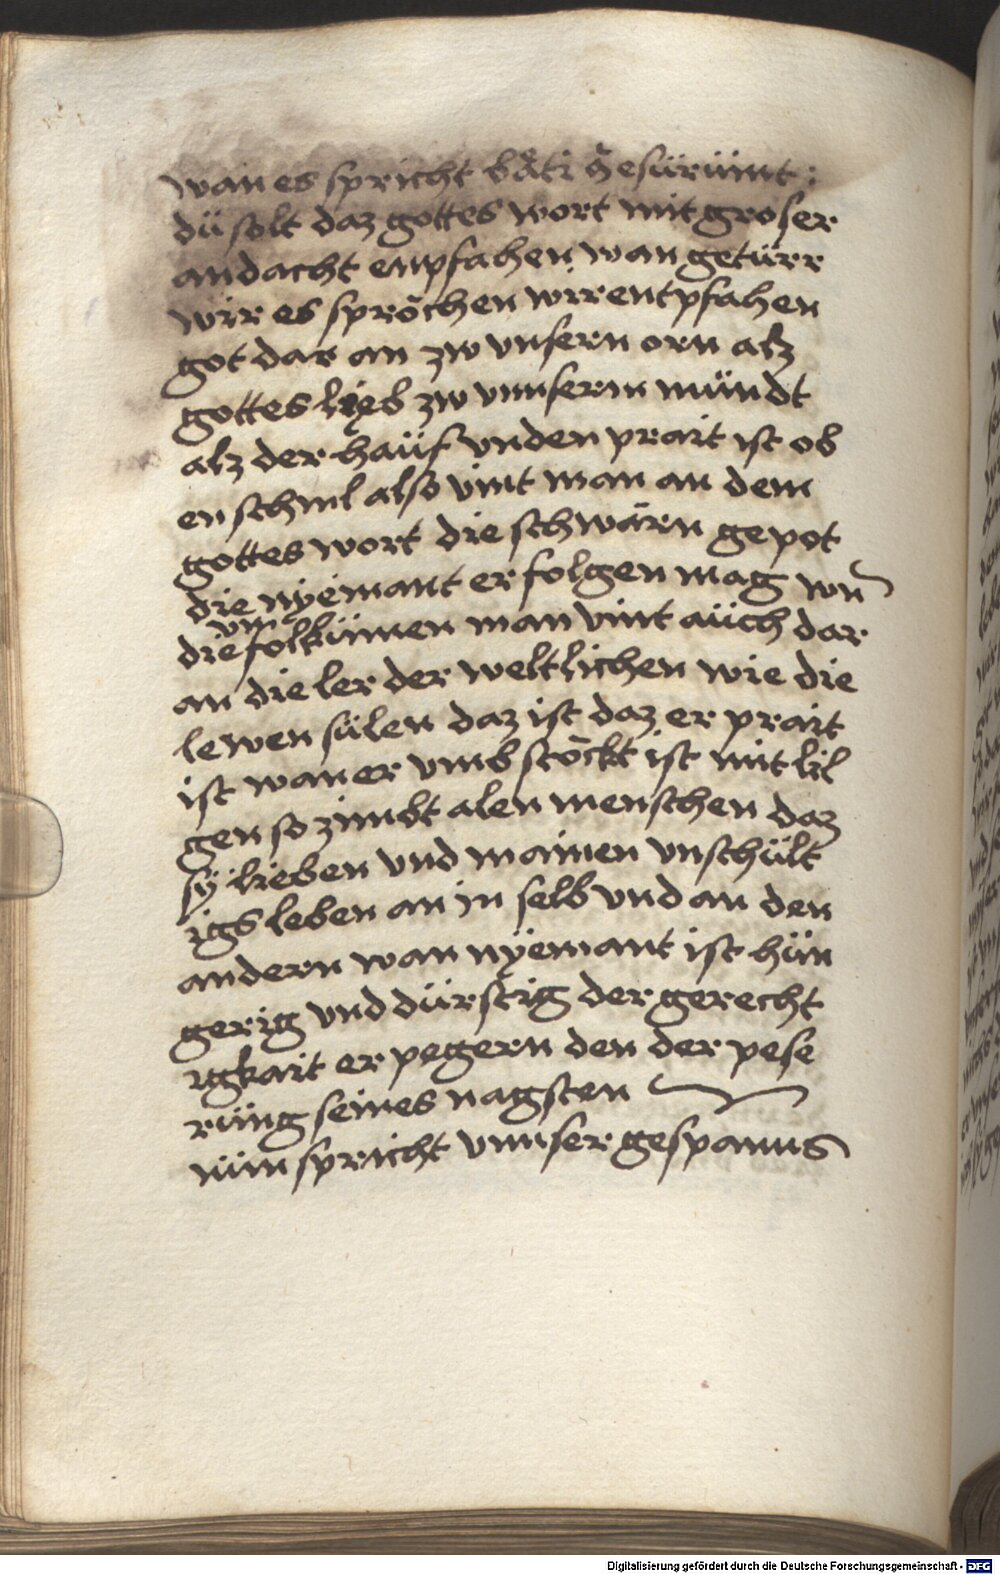 wan es spricht båti Jesürümt :
dü solt daz gottes wort mit groser
andacht enpfahen wan getürr
wir es spröchen wir entpfahen
got dar an zw unsern orn alz
gottes lieb zw unnserm mündt
alz der haüf unden prait ist ob
en schml also vint man an dem
gottes wort die schwärn gepot
die nyemant er folgen mag wn̄
vm
die folkümen man vint aüch dar
an die ler der weltlichen wie die
lewen sülen daz ist daz er prait
ist wan er vmb stöckt ist mit lil
gen so zimdt alen menschen daz
sÿ lieben und mainen unschült
igs leben an in selb und an den
andern wan nÿemant ist hün
gerig und dürstig der gerecht
igkait er pegern den der pese
rüng seines nagsten
nün spricht unnser gespanns
Digitalisierung gefördert durch die Deutsche Forschungsgemeinschaft - DFG